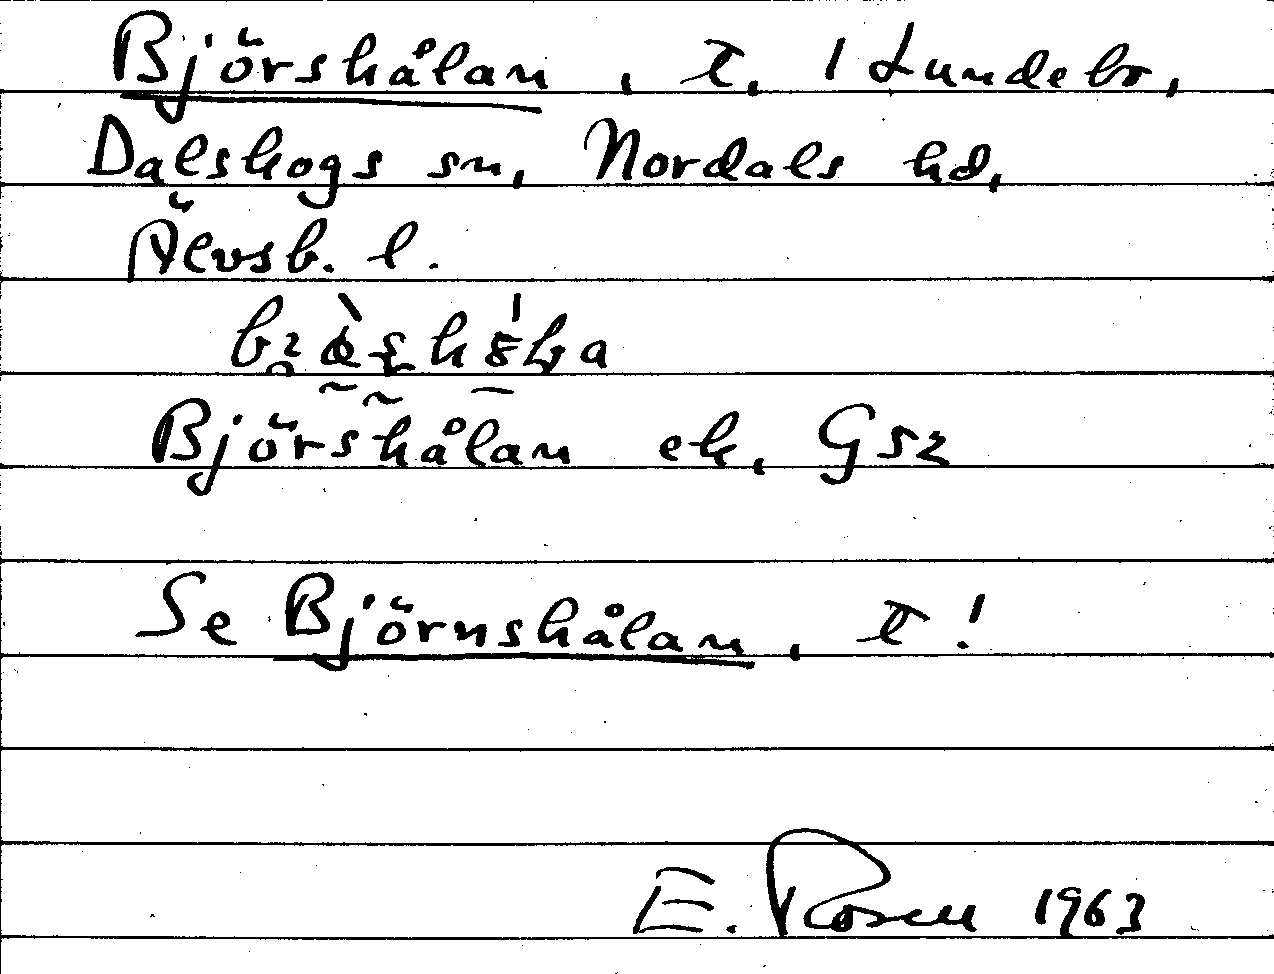 Björshålan, t. 1 Lundebo,
Dalskogs sn, Nordals hd,
Älvsb. l.
Björshålan ek. G 52
Se Björnshålan, t!
E. Rosen 1963